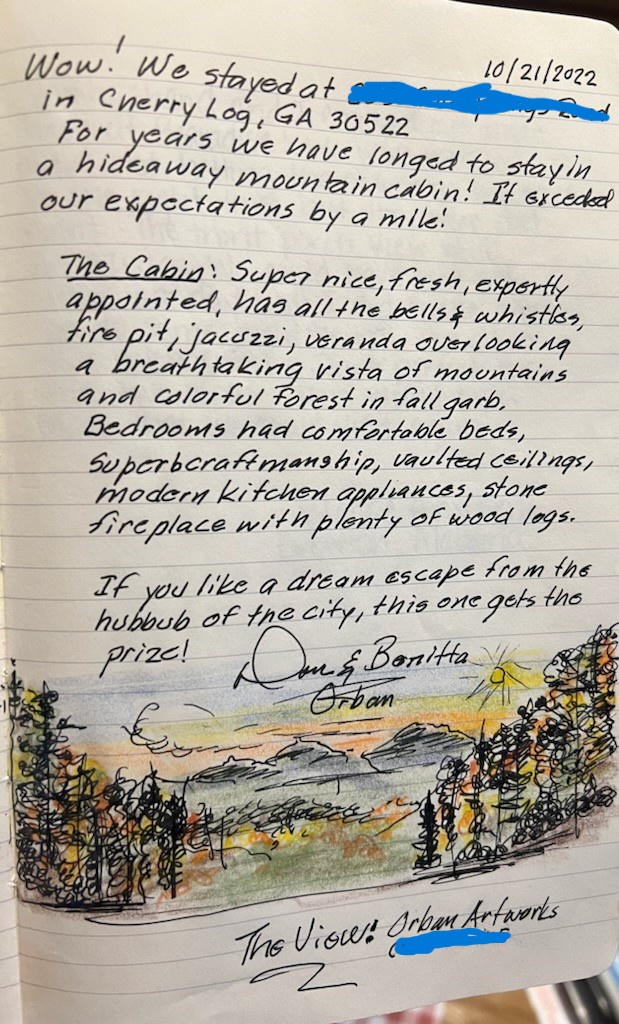 10/21/2022
Wow! We stayed at
in Cherry Log, GA 30522
For years we have longed to stay in
a hideaway mountain cabin! It exceded
our expectations by a mile!
The Cabin: Super nice, fresh, expertly
appointed, has all the bells & whistles,
fire pit, jacuzzi, veranda overlooking
a breathtaking vista of mountains
and colorful forest in fall garb.
Bedrooms had comfortable beds,
superb craftmanship, vaulted ceilings,
modern kitchen appliances, stone
fireplace with plenty of wood logs.
If you like a dream escape from the
hubbub of the city, this one gets the
prize!
Don & Bonitta
Orban
The View! Orban Artworks